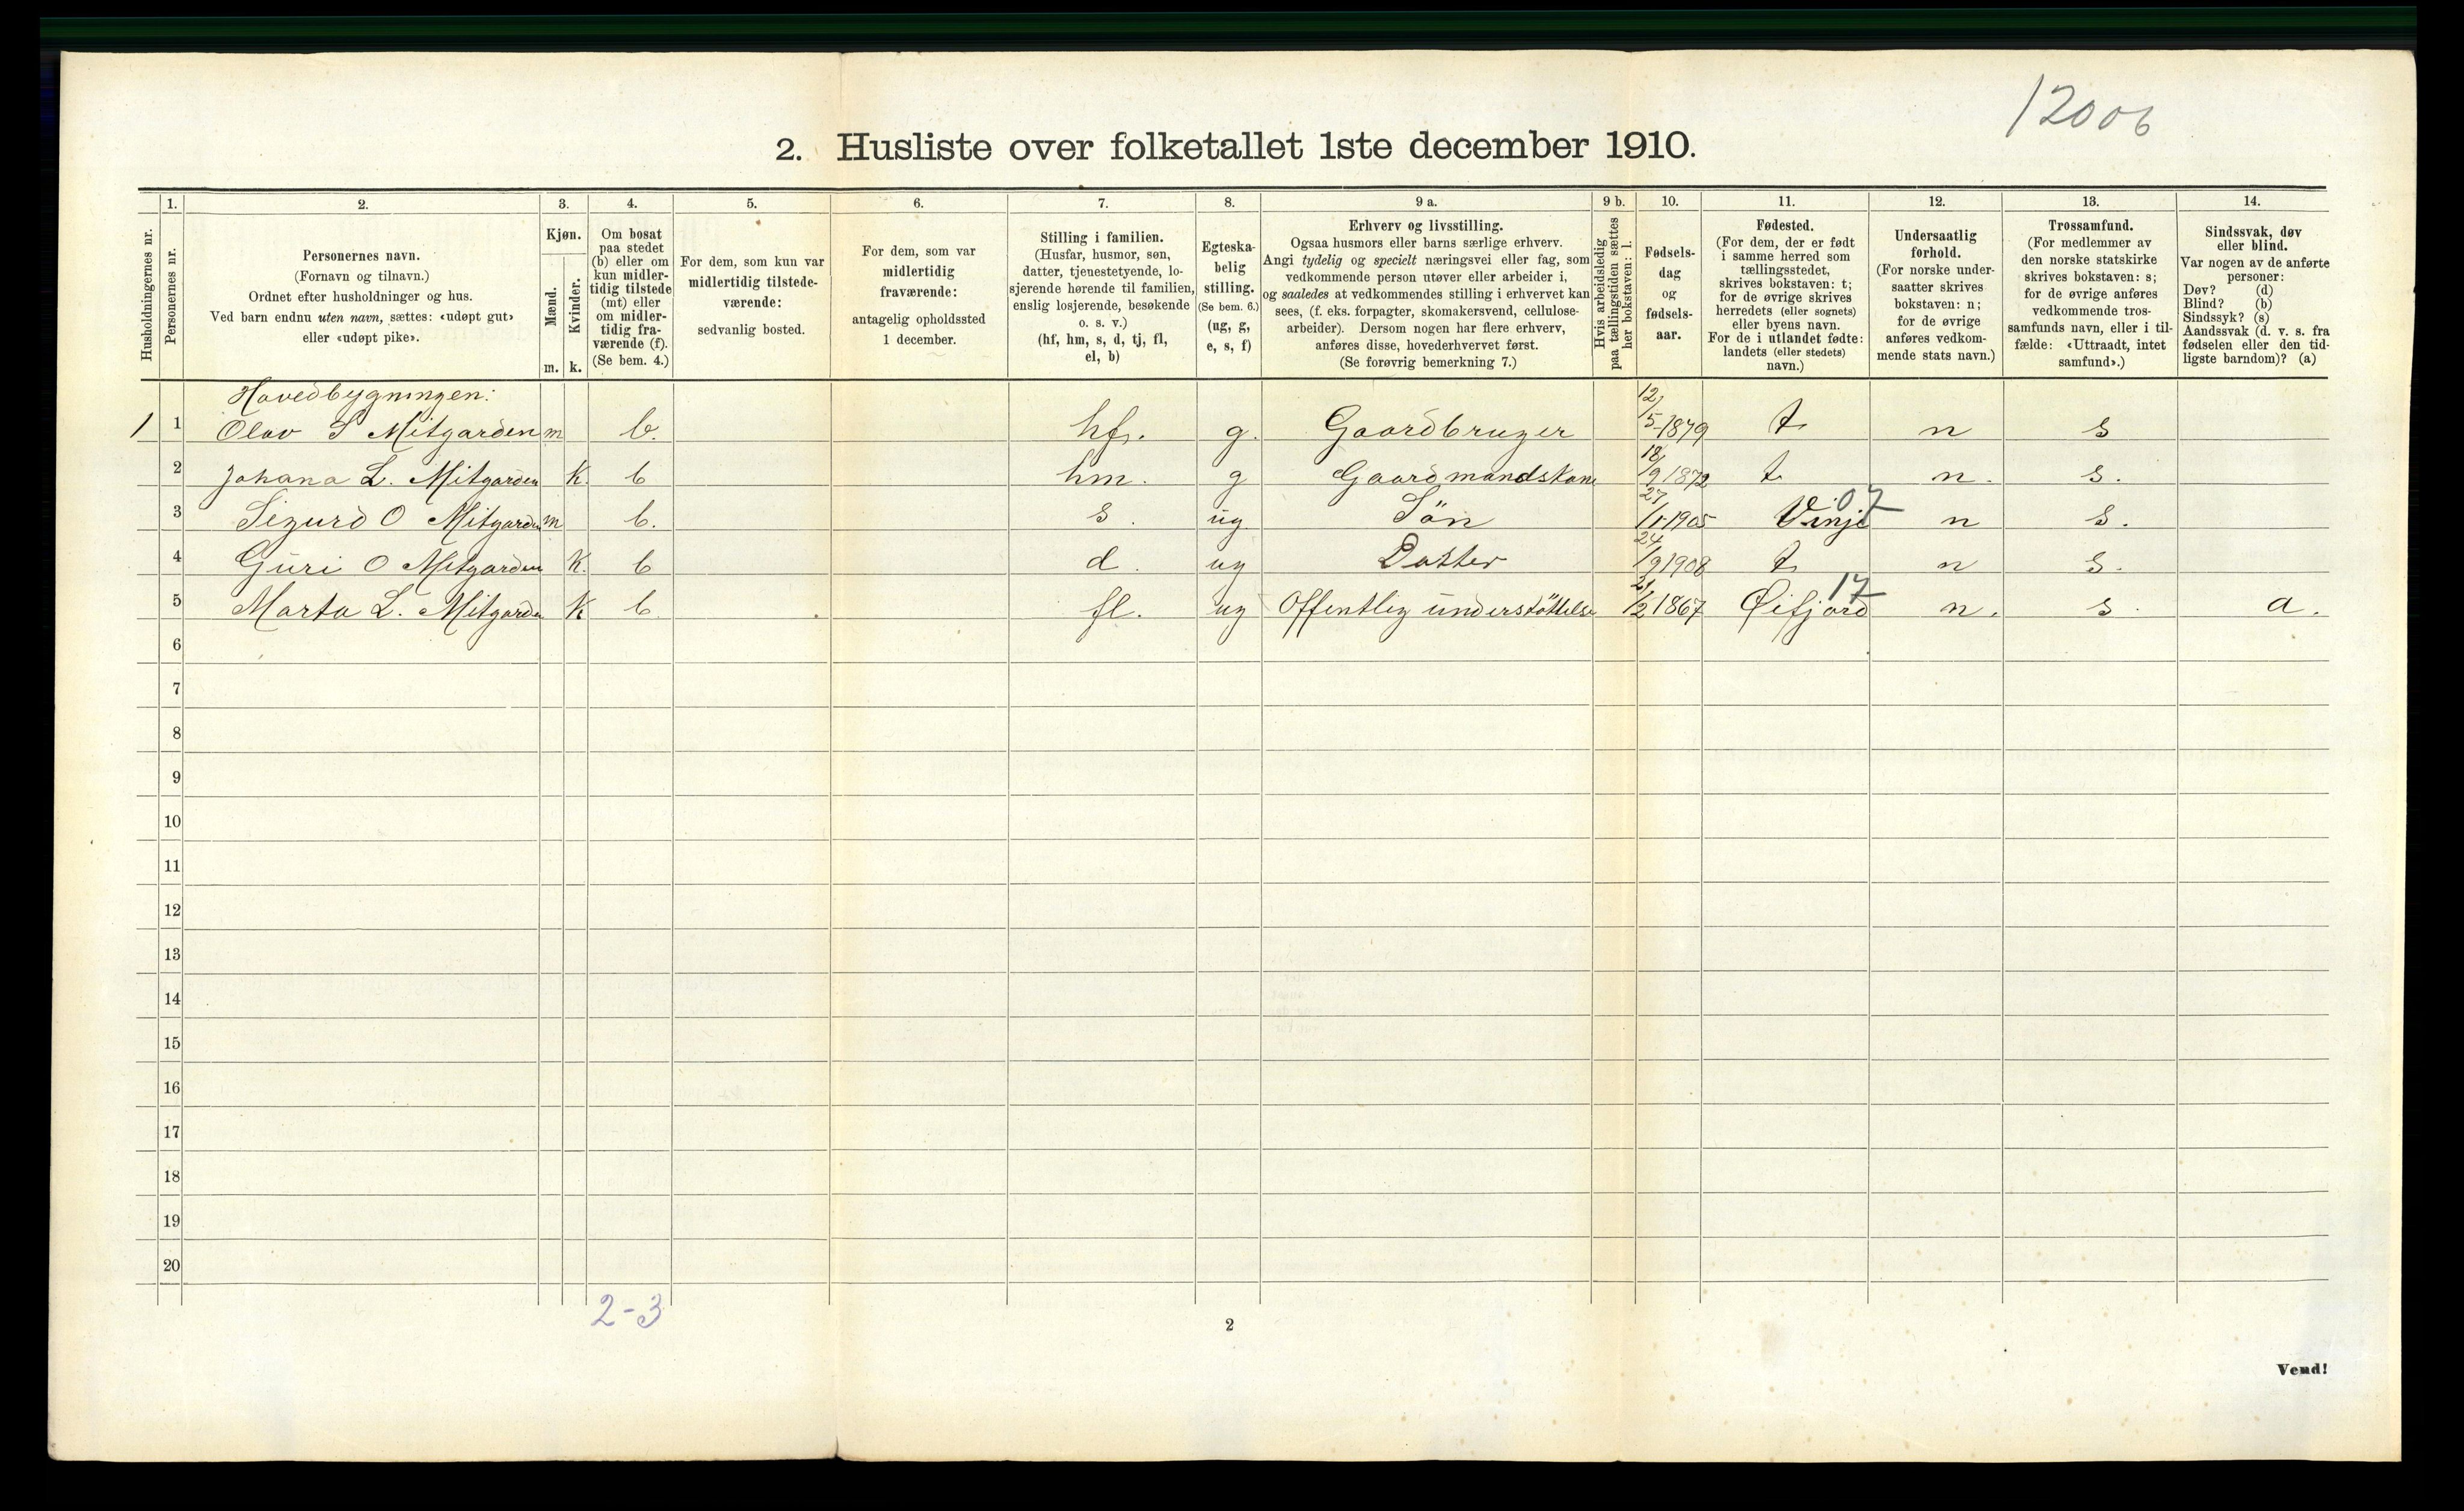 12006
2. Husliste over folketallet 1ste december 1910.
Husholdningernes nr.
1.
Personernes nr.
2.
Personernes navn.
(Fornavn og tilnavn.)
Ordnet efter husholdninger og hus.
Ved barn endnu uten navn, sættes: «udøpt gut»
eller «udøpt pike».
3.
Kjøn.
Mænd.
Kvinder.
m. k.
4.
Om bosat
paa stedet
(b) eller om
kun midler-
tidig tilstede
(mt) eller
om midler-
tidig fra-
værende (f).
(Se bem. 4.)
5.
For dem, som kun var
midlertidig tilstede-
værende:
sedvanlig bosted.
6.
For dem, som var
midlertidig
fraværende:
antagelig opholdssted
1 december.
7.
Stilling i familien.
(Husfar, husmor, søn,
datter, tjenestetyende, lo-
sjerende hørende til familien,
enslig losjerende, besøkende
o. s. v.)
(hf, hm, s, d, tj, fl,
el, b)
8.
Egteska-
belig
stilling.
(Se bem. 6.)
(ug, g,
e, s, f)
9 a.
Erhverv og livsstilling.
Ogsaa husmors eller barns særlige erhverv.
Angi tydelig og specielt næringsvei eller fag, som
vedkommende person utøver eller arbeider i,
og saaledes at vedkommendes stilling i erhvervet kan
sees, (f. eks. forpagter, skomakersvend, cellulose-
arbeider). Dersom nogen har flere erhverv,
anføres disse, hovederhvervet først.
(Se forøvrig bemerkning 7.)
9 b.
Hvis arbeidsledig
paa tællingstiden sættes
her bokstaven: l.
10.
Fødsels-
dag
og
fødsels-
aar.
11.
Fødested.
(For dem, der er født
i samme herred som
tællingsstedet,
skrives bokstaven: t;
for de øvrige skrives
herredets (eller sognets)
eller byens navn.
For de i utlandet fødte:
landets (eller stedets)
navn.)
12.
Undersaatlig
forhold.
(For norske under-
saatter skrives
bokstaven: n;
for de øvrige
anføres vedkom-
mende stats navn.)
13.
Trossamfund.
(For medlemmer av
den norske statskirke
skrives bokstaven: s;
for de øvrige anføres
vedkommende tros-
samfunds navn, eller i til-
fælde: «Uttraadt, intet
samfund».)
14.
Sindssvak, døv
eller blind.
Var nogen av de anførte
personer:
Døv? (d)
Blind? (b)
Sindssyk? (s)
Aandssvak (d. v. s. fra
fødselen eller den tid-
ligste barndom)? (a)
Hovedbygningen:
1 1 Olav S Mitgarden m b. hf. g. Gaardbruger 12/5-1879 t n s
2 Johana L. Mitgarden k. b hm. g Gaardmandskone 18/9 1872 t n. s.
3 Sigurd O Mitgarden m b. s. ug. Sön 27/1-1905 Vinje 07 n s.
4 Guri O Mitgarden k. b d. ug Datter 24/9 1908 t n s.
5 Marta L. Mitgarden k b. fl. ug Offentlig understöttelse 21/2 1867 Øifjord 17 n. s. a.
6
7
8
9
10
11
12
13
14
15
16
17
18
19
20
2-3
2
Vend!